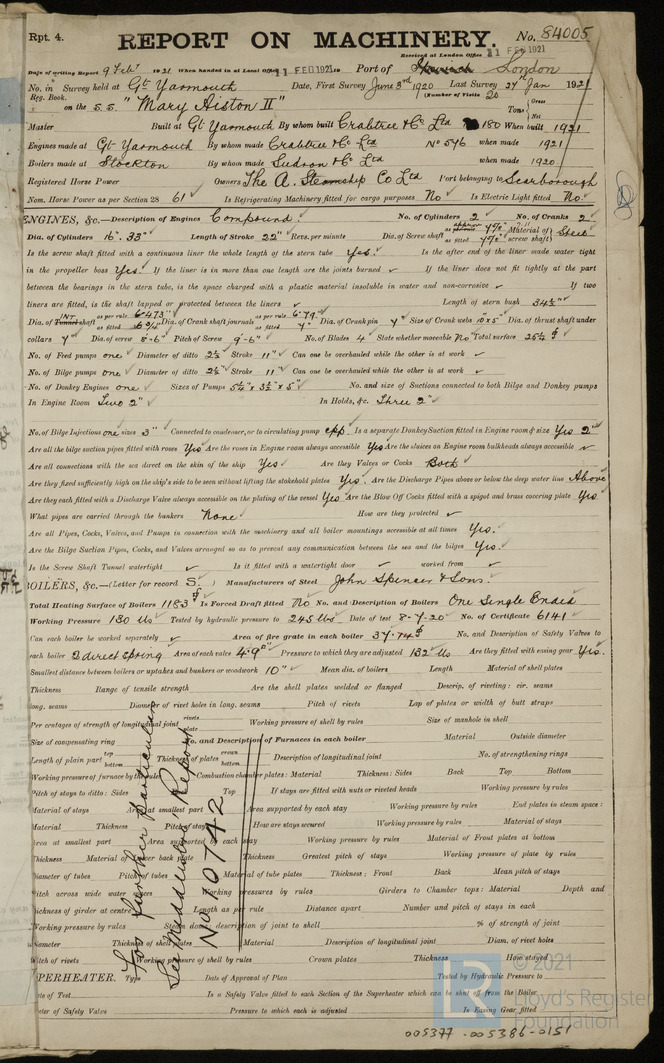 Rpt. 4.
REPORT ON MACHINERY.
No. 84005
Received at London Office 11 FEB 1921
Date of writing Report 9 Feb 1921 When handed in at Local Office 11 FEB 1921 Port of London
No. in Survey held at Gt Yarmouth Date, First Survey June 3rd 1920 Last Survey 27 Jan 1921
Reg. Book. (Number of Visits 20
on the S.S. "Mary Aiston II" Tons Gross Net
Master Built at Gt Yarmouth By whom built Crabtree & Co Ltd 180 When built 1921
Engines made at Gt Yarmouth By whom made Crabtree & Co Ltd No 546 when made 1921
Boilers made at Stockton By whom made Sudron & Co Ltd when made 1920
Registered Horse Power Owners The A. Steamship Co Ltd Port belonging to Scarborough
Nom. Horse Power as per Section 28 61 Is Refrigerating Machinery fitted for cargo purposes No Is Electric Light fitted No.
ENGINES, &c.—Description of Engines Compound No. of Cylinders 2 No. of Cranks 2
Dia. of Cylinders 16". 33" Length of Stroke 22" Revs. per minute Dia. of Screw shaft as fitted Material of screw shaft Steel
Is the screw shaft fitted with a continuous liner the whole length of the stern tube Yes. Is the after end of the liner made water tight
in the propeller boss Yes. If the liner is in more than one length are the joints burned If the liner does not fit tightly at the part
between the bearings in the stern tube, is the space charged with a plastic material insoluble in water and non-corrosive If two
liners are fitted, is the shaft lapped or protected between the liners Length of stern bush 34½"
Dia. of Tunnel shaft as per rule 6.473" as fitted 6¾" Dia. of Crank shaft journals as per rule 6.79" as fitted 7" Dia. of Crank pin 7" Size of Crank webs 10" x 5" Dia. of thrust shaft under
collars 7" Dia. of screw 8'-6" Pitch of Screw 9'-6" No. of Blades 4 State whether moveable No Total surface 25½
No. of Feed pumps one Diameter of ditto 2½ Stroke 11" Can one be overhauled while the other is at work
No. of Bilge pumps one Diameter of ditto 2½ Stroke 11 Can one be overhauled while the other is at work
No. of Donkey Engines one Sizes of Pumps 5¼" x 3½" x 5" No. and size of Suctions connected to both Bilge and Donkey pumps
In Engine Room Two 2" In Holds, &c. Three 2"
No. of Bilge Injections one sizes 3" Connected to condenser, or to circulating pump Is a separate Donkey Suction fitted in Engine room & size Yes 2"
Are all the bilge suction pipes fitted with roses Yes Are the roses in Engine room always accessible Yes Are the sluices on Engine room bulkheads always accessible
Are all connections with the sea direct on the skin of the ship Yes Are they Valves or Cocks Both
Are they fixed sufficiently high on the ship's side to be seen without lifting the stokehold plates Yes. Are the Discharge Pipes above or below the deep water line Above
Are they each fitted with a Discharge Valve always accessible on the plating of the vessel Yes Are the Blow Off Cocks fitted with a spigot and brass covering plate Yes
What pipes are carried through the bunkers None How are they protected
Are all Pipes, Cocks, Valves, and Pumps in connection with the machinery and all boiler mountings accessible at all times Yes.
Are the Bilge Suction Pipes, Cocks, and Valves arranged so as to prevent any communication between the sea and the bilges Yes.
Is the Screw Shaft Tunnel watertight Is it fitted with a watertight door worked from
BOILERS, &c.—(Letter for record S.) Manufacturers of Steel John Spencer & Sons.
Total Heating Surface of Boilers 1183 Is Forced Draft fitted No No. and Description of Boilers One Single Ended
Working Pressure 130 lbs Tested by hydraulic pressure to 245 lbs Date of test 8-7-20 No. of Certificate 6141
Can each boiler be worked separately Area of fire grate in each boiler No. and Description of Safety Valves to
each boiler 2 direct spring Area of each valve 4.9" Pressure to which they are adjusted 132 lbs Are they fitted with easing gear Yes.
Smallest distance between boilers or uptakes and bunkers or woodwork 10" Mean dia. of boilers Length Material of shell plates
Thickness Range of tensile strength Are the shell plates welded or flanged Descrip. of riveting: cir. seams
long. seams Diameter of rivet holes in long. seams Pitch of rivets Lap of plates or width of butt straps
Per centages of strength of longitudinal joint rivets plate Working pressure of shell by rules Size of manhole in shell
Size of compensating ring No. and Description of Furnaces in each boiler Material Outside diameter
Length of plain part top bottom Thickness of plates crown bottom Description of longitudinal joint No. of strengthening rings
Working pressure of furnace by the rules Combustion chamber plates: Material Thickness: Sides Back Top Bottom
Pitch of stays to ditto: Sides Top If stays are fitted with nuts or riveted heads Working pressure by rules
Material of stays Area at smallest part Area supported by each stay Working pressure by rules End plates in steam space:
Material Thickness Pitch of stays How are stays secured Working pressure by rules Material of stays
Area at smallest part Area supported by each stay Working pressure by rules Material of Front plates at bottom
Thickness Material of Lower back plate Thickness Greatest pitch of stays Working pressure of plate by rules
Diameter of tubes Pitch of tubes Material of tube plates Thickness: Front Back Mean pitch of stays
Pitch across wide water spaces Working pressures by rules Girders to Chamber tops: Material Depth and
thickness of girder at centre Length as per rule Distance apart Number and pitch of stays in each
Working pressure by rules Steam dome: description of joint to shell % of strength of joint
Diameter Thickness of shell plates Material Description of longitudinal joint Diam. of rivet holes
Pitch of rivets Working pressure of shell by rules Crown plates Thickness How stayed
For further particulars
See Middlesbro' Report
No 10742
SUPERHEATER. Type Date of Approval of Plan Tested by Hydraulic Pressure to
Date of Test Is a Safety Valve fitted to each Section of the Superheater which can be shut off from the Boiler
Diameter of Safety Valve Pressure to which each is adjusted Is Easing Gear fitted
© 2021
Lloyd's Register
Foundation
005377-005386-0151